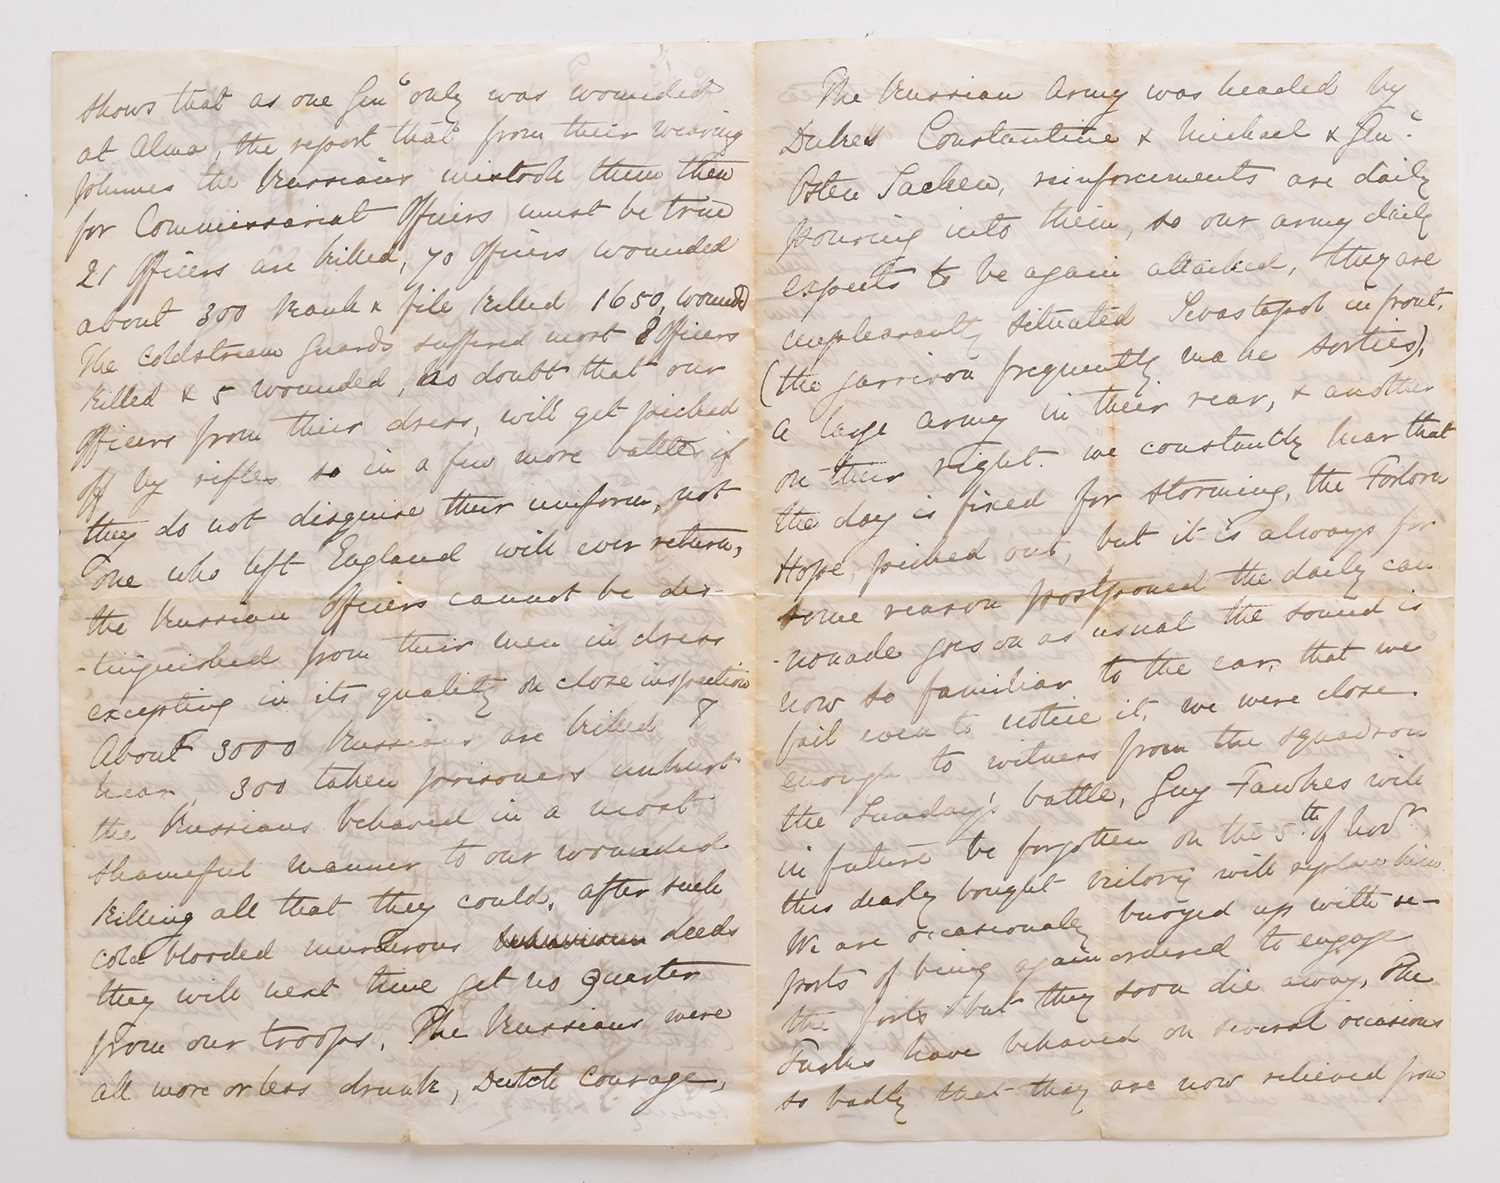 shows that as one Genl only was wounded
at Alma, the report that from their wearing
plumes the Russians mistook them then
for Commissariat Officers must be true
21 Officers are killed, 70 Officers wounded
about 300 Rank & file killed 1650, wounded
The Coldstream Guards suffered most 8 Officers
killed & 5 wounded, no doubt that our
Officers from their dress, will get picked
off by rifles so in a few more battles if
they do not disguise their uniform, not
one who left England will ever return,
the Russian Officers cannot be dis-
-tinguished from their men in dress
excepting in its quality on close inspection
About 3000 Russians are killed I
hear, 300 taken prisoners unhurt
the Russians behaved in a most
shameful manner to our wounded
killing all that they could, after such
cold blooded murderous deeds
they will next time get no Quarter
from our troops. The Russians were
all more or less drunk, Dutch Courage,
The Russian Army was headed by
Dukes Constantine & Michael & Genl
Osten Sacken, reinforcements are daily
pouring into them, so our army daily
expects to be again attacked, they are
unpleasantly situated Sevastopol in front,
(the garrison frequently make sorties),
a large army in their rear, & another
on their right. we constantly hear that
the day is fixed for storming, the Forlorn
Hope picked out, but it is always for
some reason postponed the daily can
-nonade goes on as usual the sound is
now so familiar to the ear, that we
fail even to notice it, we were close
enough to witness from the squadron
the Sunday's battle, Guy Fawkes will
in future be forgotten on the 5th of Novr
this dearly bought victory will replace him
We are occasionally buoyed up with re-
ports of being again ordered to engage
the forts but they soon die away, The
Turks have behaved on several occasions
so badly that they are now relieved from